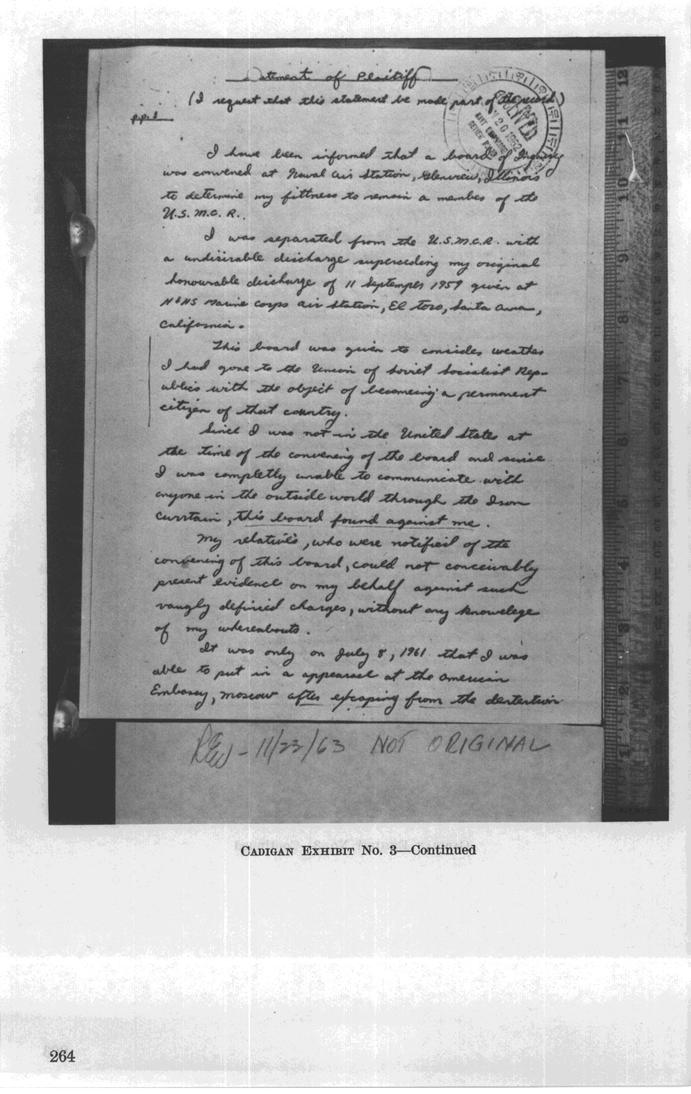 Statement of Plaitiff
(I request that this statement be made part of the record)
pps 1
I have been informed that a board of Inquiry
was convened at Naval Air Station, Glenview, Illinois
to determine my fittness to remain a member of the
U.S.M.C.R..
I was separated from the U.S.M.C.R. with
a undisirable discharge superceding my original
honourable discharge of 11 September 1959 given at
H&HS Marine Corps Air Station, El Toro, Santa Anna,
California.
This board was given to consider weather
I had gone to the Union of Soviet Socialist Rep-
ublics with the object of becomeing a permonent
citizen of that country.
Since I was not in the United States at
the time of the convening of the board and since
I was completly unable to communicate with
anyone in the outside world through the Iron
Curtain, this board found against me.
My relative's, who were notified of the
convening of this board, could not conceivably
present evidence on my behalf against such
vaugly defined charges, without any knowelege
of my whereabouts.
It was only on July 8, 1961 that I was
able to put in a appearsel at the American
Embassy, Moscow after escaping from the
RECEIVED
20 1962
- 11/23/63 NOT ORIGINAL
12
11
10
9
8
7
6
5
4
3
2
1
CADIGAN EXHIBIT No. 3—Continued
264